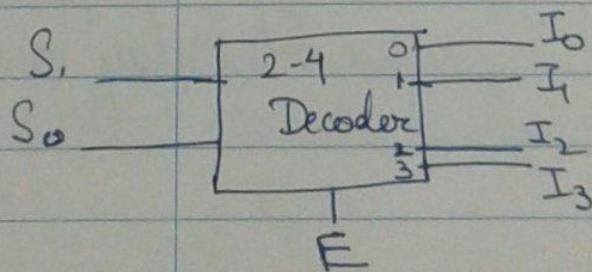 S₁
S₀
2-4
Decoder
0
1
2
3
I₀
I₁
I₂
I₃
E